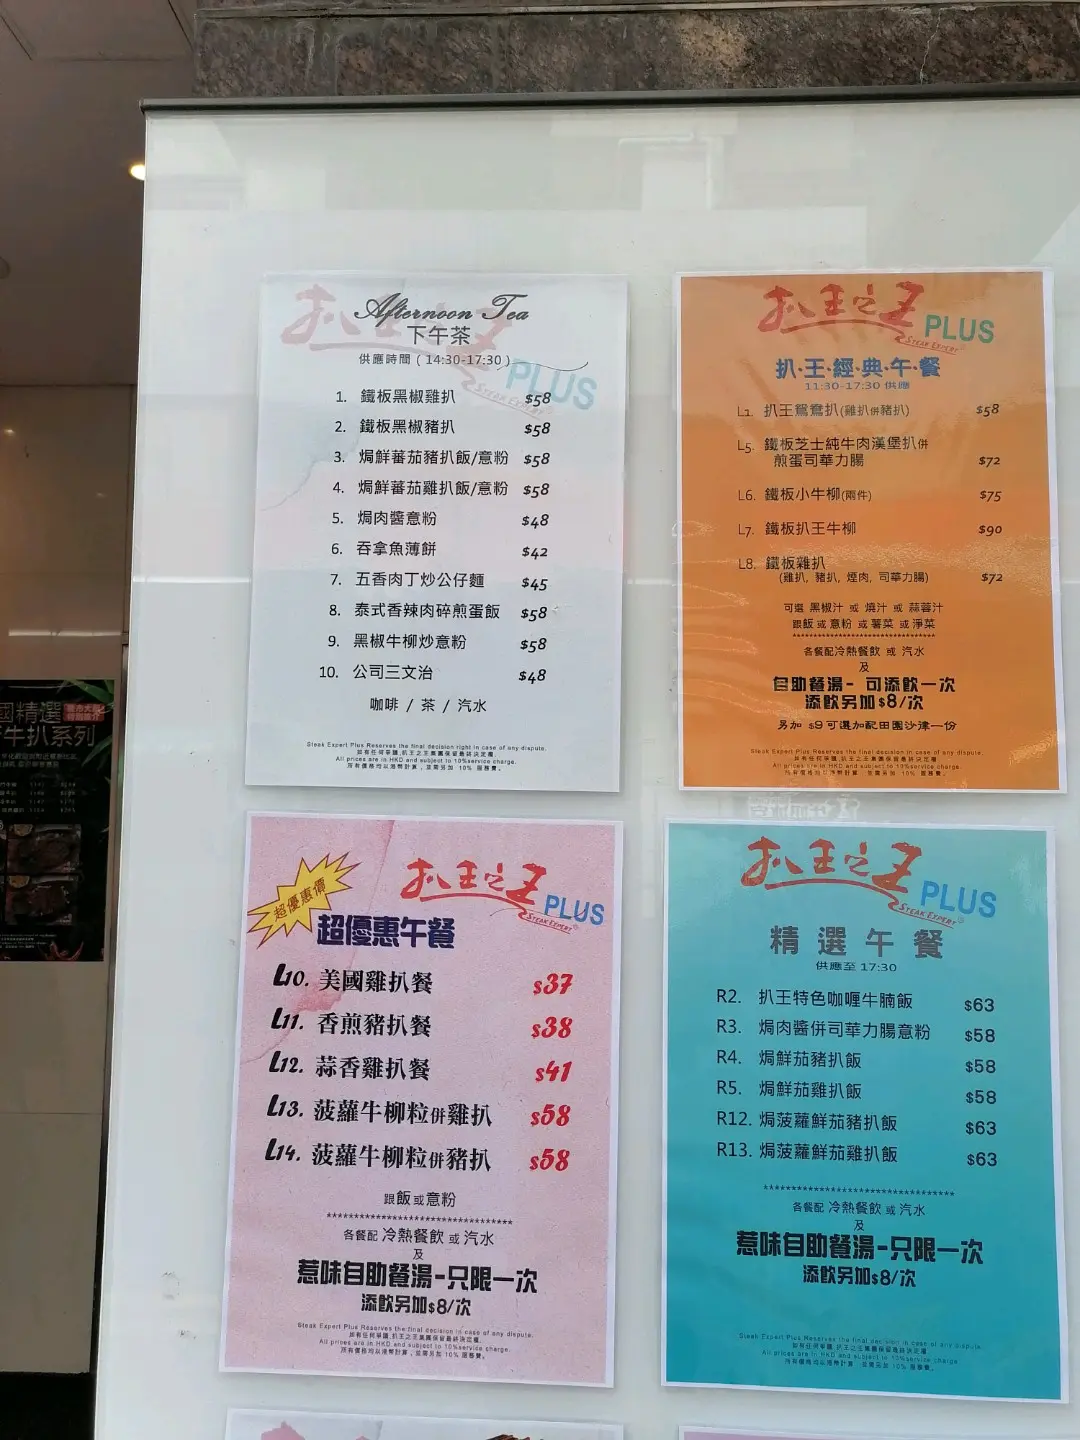 扒王之王
PLUS
STEAK EXPERT
Afternoon Tea
下午茶
供應時間 ( 14:30-17:30 )
1. 鐵板黑椒雞扒 $58
2. 鐵板黑椒豬扒 $58
3. 焗鮮蕃茄豬扒飯/意粉 $58
4. 焗鮮蕃茄雞扒飯/意粉 $58
5. 焗肉醬意粉 $48
6. 吞拿魚薄餅 $42
7. 五香肉丁炒公仔麵 $45
8. 泰式香辣肉碎煎蛋飯 $58
9. 黑椒牛柳炒意粉 $58
10. 公司三文治 $48
咖啡 / 茶 / 汽水
Steak Expert Plus Reserves the final decision right in case of any dispute.
如有任何爭議,扒王之王集團保留最終決定權.
All prices are in HKD and subject to 10%service charge.
所有價格均以港幣計算, 並需另加 10% 服務費.
扒王之王
PLUS
STEAK EXPERT
扒·王·經·典·午·餐
11:30-17:30 供應
L1. 扒王鴛鴦扒(雞扒併豬扒) $58
L5. 鐵板芝士純牛肉漢堡扒併
煎蛋司華力腸 $72
L6. 鐵板小牛柳(兩件) $75
L7. 鐵板扒王牛柳 $90
L8. 鐵板雜扒
(雞扒, 豬扒, 煙肉, 司華力腸) $72
可選 黑椒汁 或 燒汁 或 蒜蓉汁
跟飯 或 意粉 或 薯菜 或 淨菜
************************************
各餐配冷熱餐飲 或 汽水
及
自助餐湯- 可添飲一次
添飲另加$8/次
另加 $9可選加配田園沙律一份
Steak Expert Plus Reserves the final decision in case of any dispute.
如有任何爭議,扒王之王集團保留最終決定權.
All prices are in HKD and subject to 10%service charge.
所有價格均以港幣計算, 並需另加 10% 服務費.
超優惠價
扒王之王
PLUS
STEAK EXPERT
超優惠午餐
L10. 美國雞扒餐 $37
L11. 香煎豬扒餐 $38
L12. 蒜香雞扒餐 $41
L13. 菠蘿牛柳粒併雞扒 $58
L14. 菠蘿牛柳粒併豬扒 $58
跟飯或意粉
**********************************
各餐配 冷熱餐飲 或 汽水
及
惹味自助餐湯-只限一次
添飲另加$8/次
Steak Expert Plus Reserves the final decision in case of any dispute.
如有任何爭議,扒王之王集團保留最終決定權.
All prices are in HKD and subject to 10%service charge.
所有價格均以港幣計算, 並需另加 10% 服務費.
扒王之王
PLUS
STEAK EXPERT
精選午餐
供應至 17:30
R2. 扒王特色咖喱牛腩飯 $63
R3. 焗肉醬併司華力腸意粉 $58
R4. 焗鮮茄豬扒飯 $58
R5. 焗鮮茄雞扒飯 $58
R12. 焗菠蘿鮮茄豬扒飯 $63
R13. 焗菠蘿鮮茄雞扒飯 $63
***********************************
各餐配 冷熱餐飲 或 汽水
及
惹味自助餐湯-只限一次
添飲另加$8/次
Steak Expert Plus Reserves the final decision in case of any dispute.
如有任何爭議,扒王之王集團保留最終決定權.
All prices are in HKD and subject to 10%service charge.
所有價格均以港幣計算, 並需另加 10% 服務費.
國精選
牛扒系列